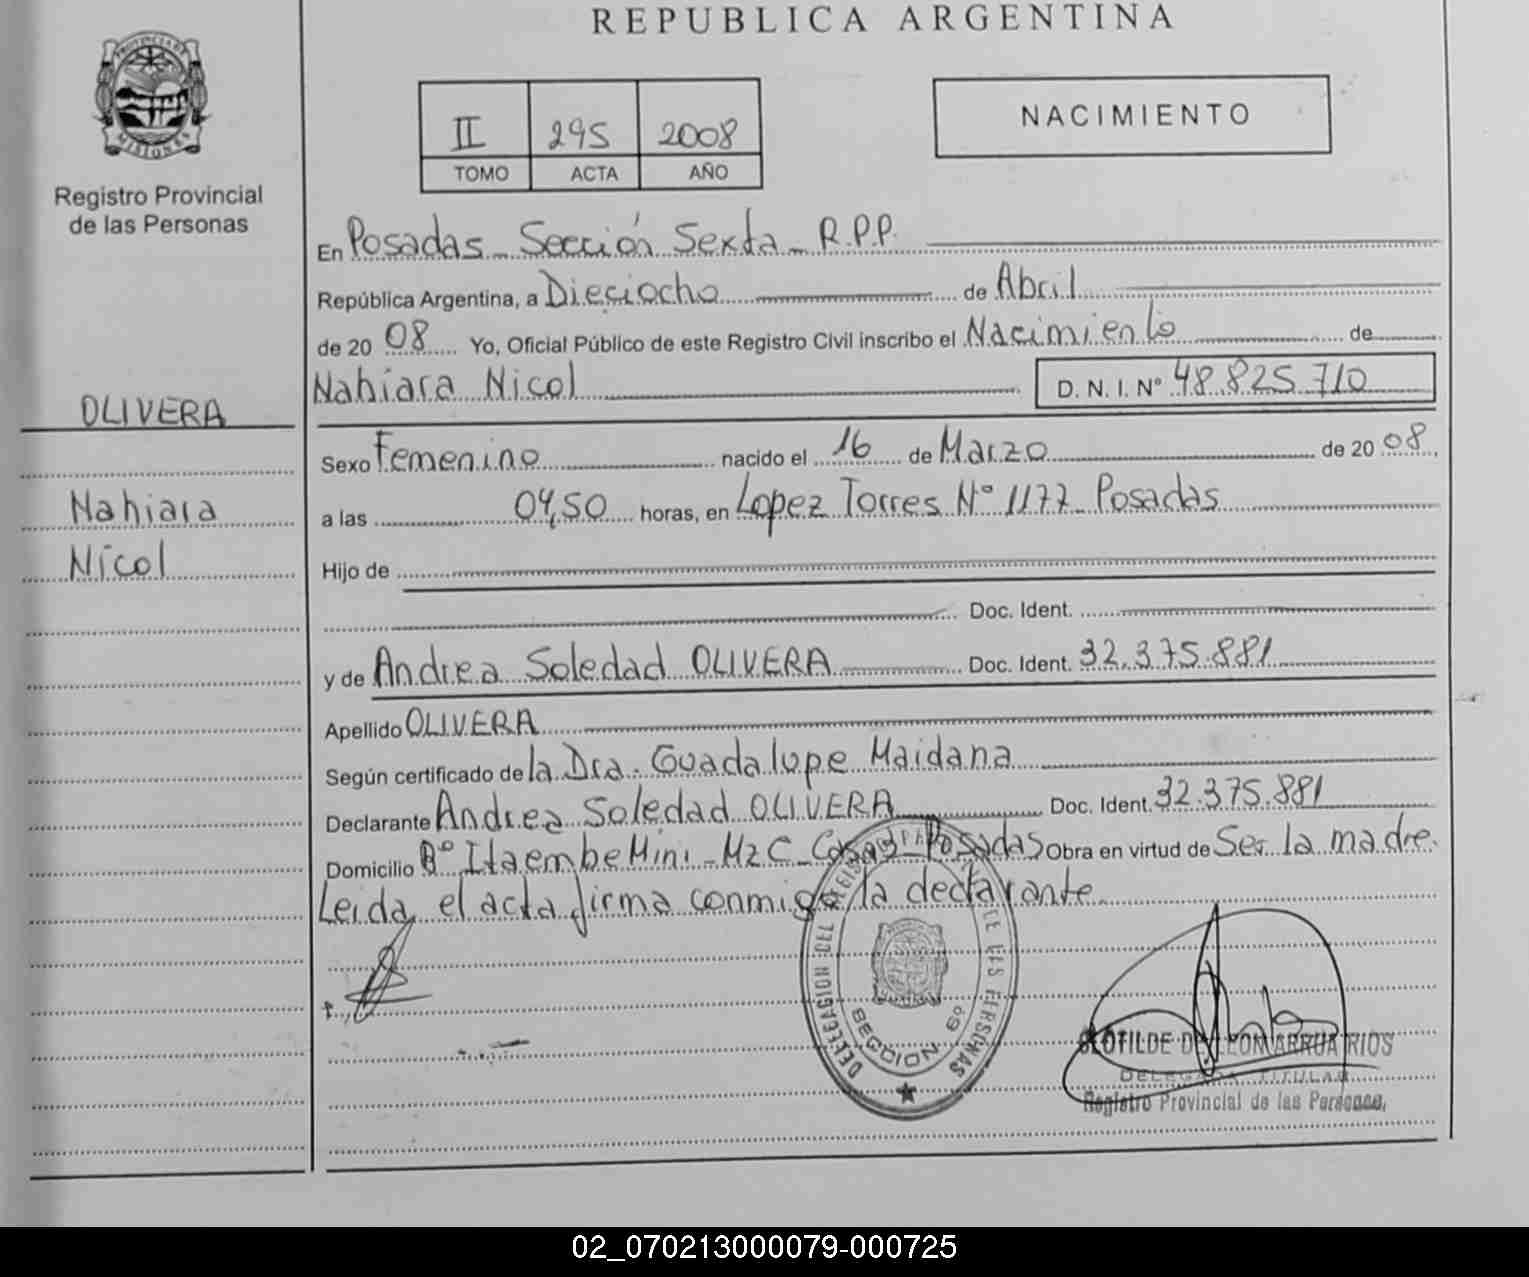 REPUBLICA ARGENTINA
PROVINCIA DE
MISIONES
Registro Provincial
de las Personas
II 295 2008
TOMO ACTA AÑO
NACIMIENTO
En Posadas - Sección Sexta - R.P.P.
República Argentina, a Dieciocho de Abril
de 20 08 Yo, Oficial Público de este Registro Civil inscribo el Nacimiento de
Nahiara Nicol D. N. I. Nº 48.825.710
OLIVERA
Nahiara
Nicol
Sexo Femenino nacido el 16 de Marzo de 20 08,
a las 04,50 horas, en Lopez Torres Nº 1177 Posadas
Hijo de
Doc. Ident.
y de Andrea Soledad OLIVERA Doc. Ident. 32.375.881
Apellido OLIVERA
Según certificado de la Dra. Guadalupe Maidana
Declarante Andrea Soledad OLIVERA Doc. Ident. 32.375.881
Domicilio Bº Itaembe Mini - Mz C - Posadas Obra en virtud de Ser la madre.
Leida el acta firma conmigo la declarante.
DELEGACION DEL REGISTRO DE LAS PERSONAS
SECCION 6º
CLOTILDE DE LEON ARRUA RIOS
DELEGADA TITULAR
Registro Provincial de las Personas
02_070213000079-000725